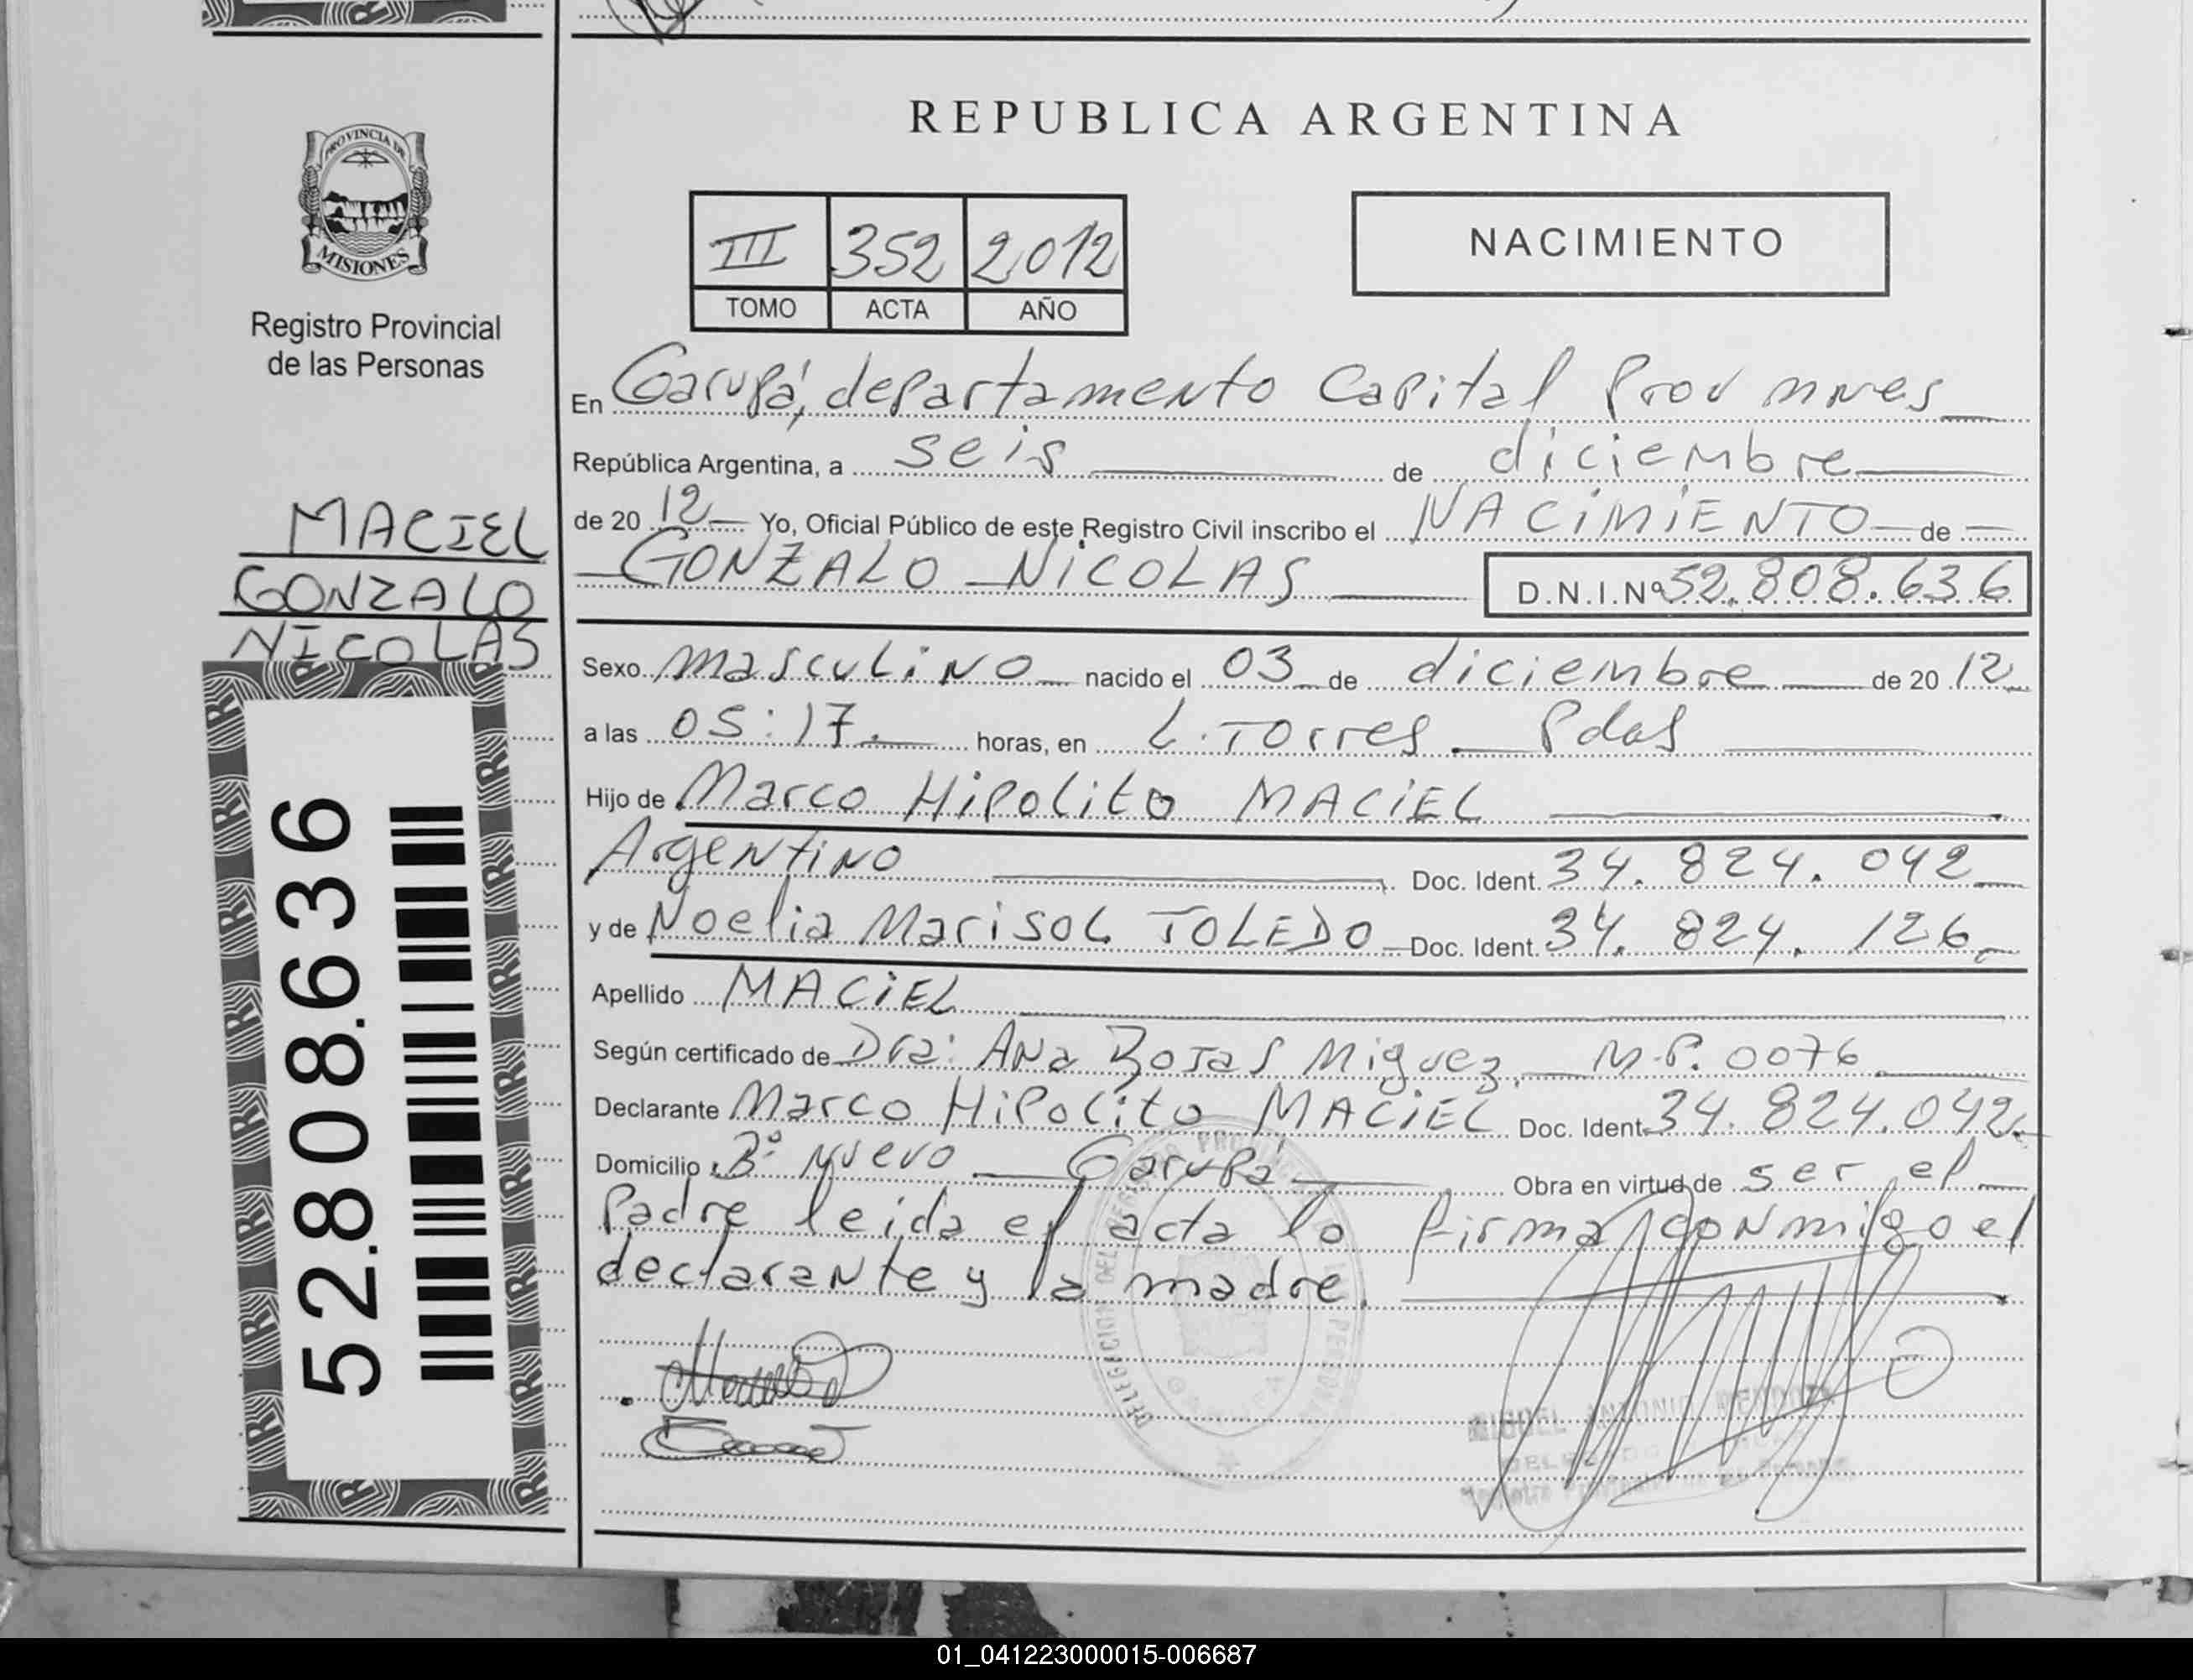 REPUBLICA ARGENTINA
PROVINCIA DE
MISIONES
Registro Provincial
de las Personas
III 352 2012
TOMO ACTA AÑO
NACIMIENTO
En Garupá, departamento Capital Prov mnes
República Argentina, a seis de diciembre
de 20 12 Yo, Oficial Público de este Registro Civil inscribo el NACIMIENTO de
GONZALO NICOLAS D.N.I.Nº 52.808.636
MACIEL
GONZALO
NICOLAS
52.808.636
Sexo masculino nacido el 03 de diciembre de 20 12
a las 05:17. horas, en L. Torres Pdas
Hijo de Marco Hipolito MACIEL
Argentino Doc. Ident. 34.824.042
y de Noelia Marisol TOLEDO Doc. Ident. 34.824.126
Apellido MACIEL
Según certificado de Dra: Ana Rojas Miguez. M.P. 0076
Declarante Marco Hipolito MACIEL Doc. Ident. 34.824.042
Domicilio Bº Nuevo Garupá Obra en virtud de ser el
Padre leida el acta lo firma conmigo el
declarante y la madre.
MIGUEL ANTONIO
01_041223000015-006687